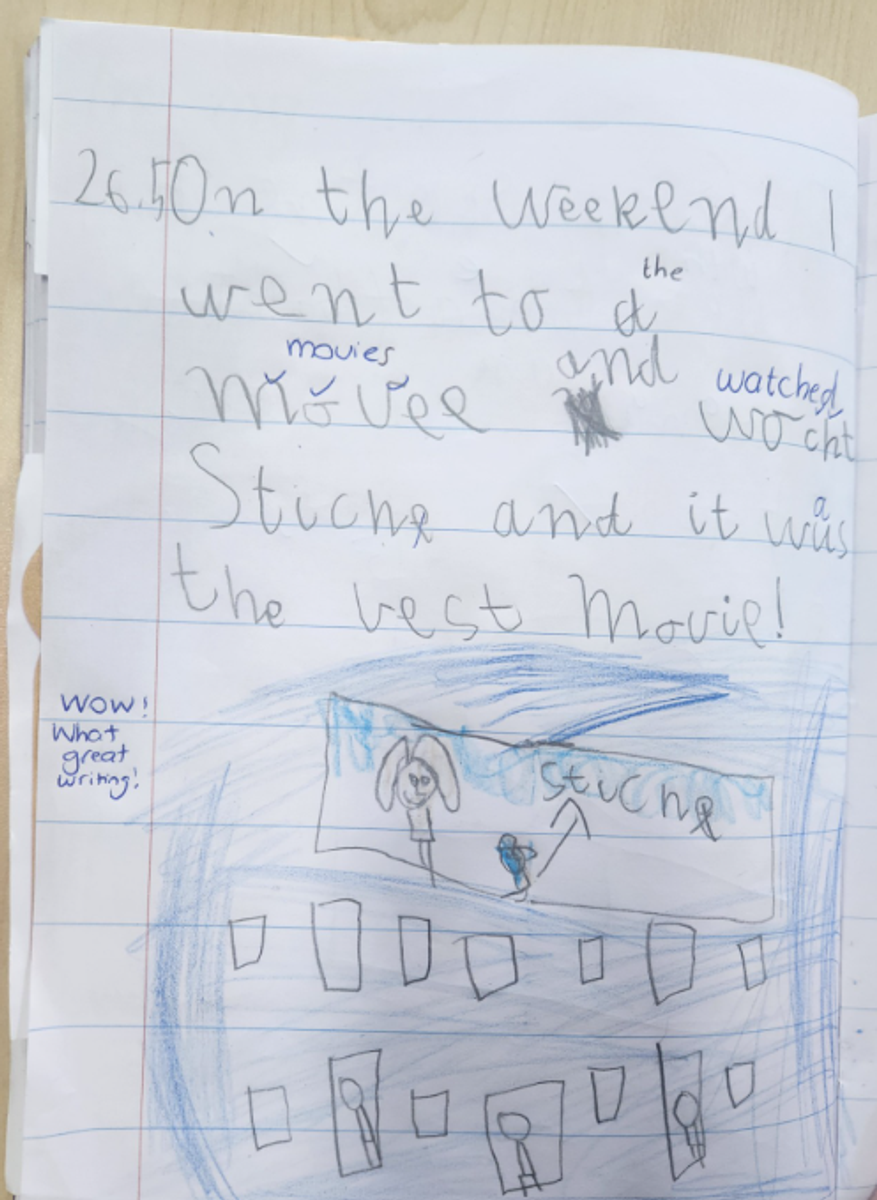 26.5 On the weekend I
the
went to a
movies and watched
movee wocht
Stiche and it wus
a
the vest movie!
WOW!
What
great
writing!
Stiche